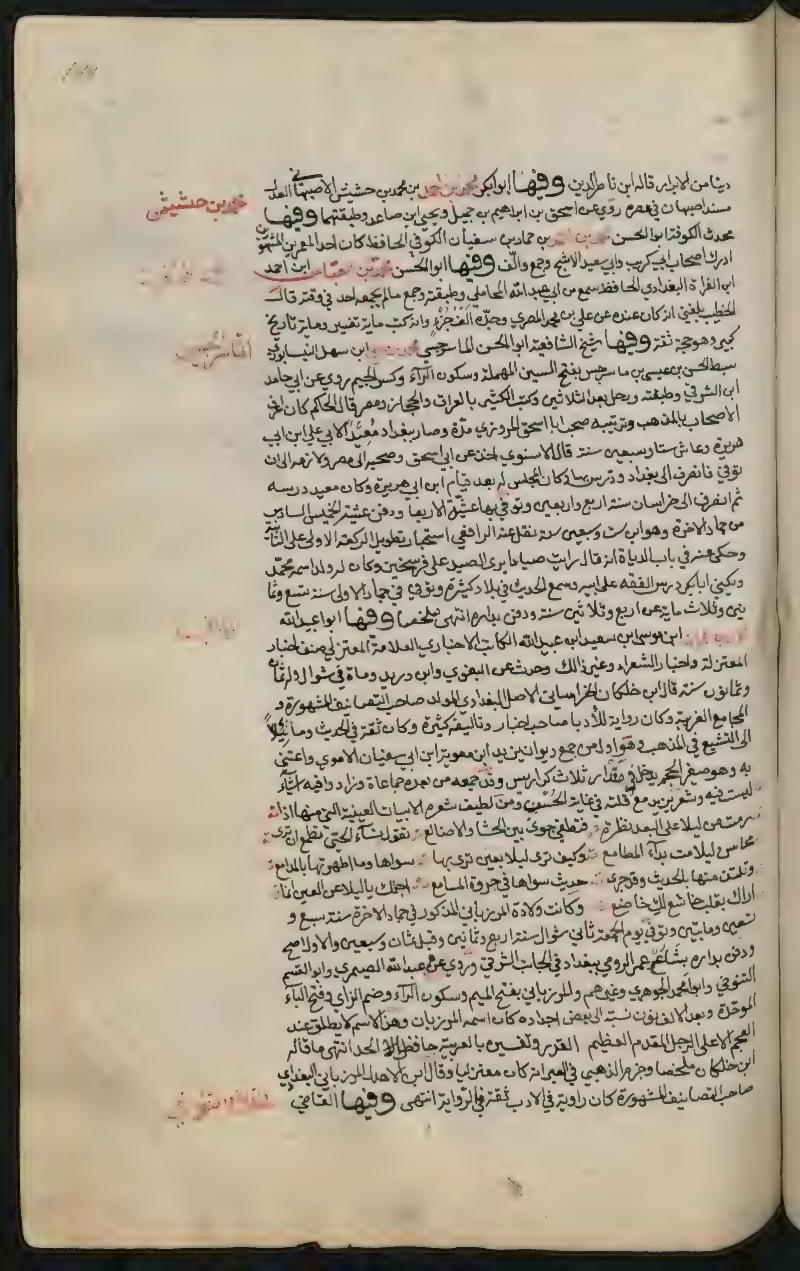 دينا من الابرار قاله ابن ناصر الدين وفيها ابوابكر محمد بن احمد بن محمد بن حشيش الاصبهاني العدل
محمد بن حشيش
مسند اصبهان في عصره روي عن اسحق بن ابراهيم بن جميل ويحيى ابن صاعد وطبقتهما وفيها
محدث الكوفة ابوا الحسن محمد بن احمد بن حماد بن سفيان الكوفي الحافظ كان احد المعمرين المشهورين
ادرك اصحاب ابي كريب وابي سعيد الاشج وجمع والف وفيها ابوا الحسن محمد بن العباس ابن احمد
ابن الفراة البغدادي الحافظ سمع من ابي عبد الله المحاملي وطبقته وجمع مالم يجمعه احد في وقته قال
الخطيب بلغني انه كان عنده عن علي بن محمد المصري وحده الف جزء وانه كتب ماية تفسير وماية تاريخ
كبير وهو حجة ثقة وفيها شيخ الشافعية ابوا الحسن الماسرجسي محمد بن علي ابن سهل النيسابوري
الماسرجسي
سبط الحسن بن عيسى بن ماسرجس بفتح السين المهملة وسكون الرآء وكسر الجيم روي عن ابي حامد
ابن الشرقي وطبقته ورحل بعد الثلاثين وكتب الكثير بالعراق والحجاز ومصر قال الحاكم كان اعرف
الاصحاب بالمذهب وترتيبه صحب ابا اسحق المروزي مدة وصار ببغداد معيدا لابي علي ابن ابي
هريرة وعاش ستا وسبعين سنة قال الاسنوي اخذ عن ابي اسحق وصحبه الى مصر ولازمه الى ان
توفي فانصرف الى بغداد ودرس بها وكان المجلس له بعد قيام ابن ابي هريرة وكان معيد درسه
ثم انصرف الى خراسان سنة اربع واربعين وتوفي بها عشية الاربعا ودفن عشية الخميس السادس
من جماد الاخرة وهو ابن ست وسبعين سنة نقل عنه الرافعي استحباب تطويل الركعة الاولى على الثانية
وحكى عنه في باب الدباة انه قال رايت صيادا يرى الصيد على فرسخين وكان له ولد اسمه محمد
ويكنى ابا بكر درس الفقه على ابيه وسمع الحديث في بلاد كثيرة وتوفي في جماد الاولى سنة تسع وثما
نين وثلاث ماية عن اربع وثلاثين سنة ودفن بداره انتهى ملخصا وفيها ابوا عبيد الله
ابن موسى ابن سعيد ابن عبيد الله الكاتب الاخباري العلامة المعتزلي صنف اخبار
المعتزلة واخبار الشعراء وغير ذالك وحدث عن البغوي وابن دريد وماة في شوال وله ثمان
وثمانون سنة قال ابن خلكان الخراساني الاصل البغدادي المولد صاحب التصانيف المشهورة و
المجاميع الغريبة وكان رواية للأدب صاحب اخبار وتاليفه كثيرة وكان ثقة في الحديث ومايلا
الى التشيع في المذهب وهو اول من جمع ديوان يزيد ابن معوية ابن ابي سفيان الاموي واعتنى
به وهو صغير الحجم يدخل في مقدار ثلاث كراريس وقد جمعه من بعده جماعاة وزاد وافيه اشيآء
ليست فيه وشعر يزيد مع قلته في غاية الحسن ومن لطيف شعره الابيات العينية التي منها اذا
رمت من ليلا على البعد نظرة فتطفي جوى بين الحشا والاضالع تقول نسآء الحي تطمع ان ترى
محاسن ليلا مت بدآء المطامع وكيف ترى ليلا بعين ترى بها سواها وما طهرتها بالمدامع
وتلتذ منها بالحديث وقد جرى حديث سواها في خروق المسامع اجلك يا ليلا عن العين انما
اراك بقلب خاشع لك خاضع وكانت ولادة المرزباني المذكور في جماد الاخرة سنة سبع و
تسعين ومايتين وتوفي يوم الجمعة ثاني شوال سنة اربع وثمانين وقيل ثمان وسبعين والاول اصح
ودفن بداره بشارع عمر الرومي ببغداد في الجانب الشرقي وروي عنه ابو عبد الله الصيمري وابوا القسم
التنوخي وابوا محمد الجوهري وغيرهم والمرزباني بفتح الميم وسكون الرآء وضم الزاي وفتح البآء
الموحدة وبعد الالف نون نسبة الى بعض اجداده كان اسمه المرزبان وهذا الاسم لا يطلق عند
العجم الا على الرجل المقدم العظيم القدر وتفسيره بالعربية حافظ الحد انتهى ما قاله
ابن خلكان ملخصا وجزم الذهبي في العبر انه كان معتزليا وقال ابن الاهدل المرزباني البغدادي
صاحب التصانيف المشهورة كان راوية في الادب ثقة في الرواية انتهى وفيها القاضي